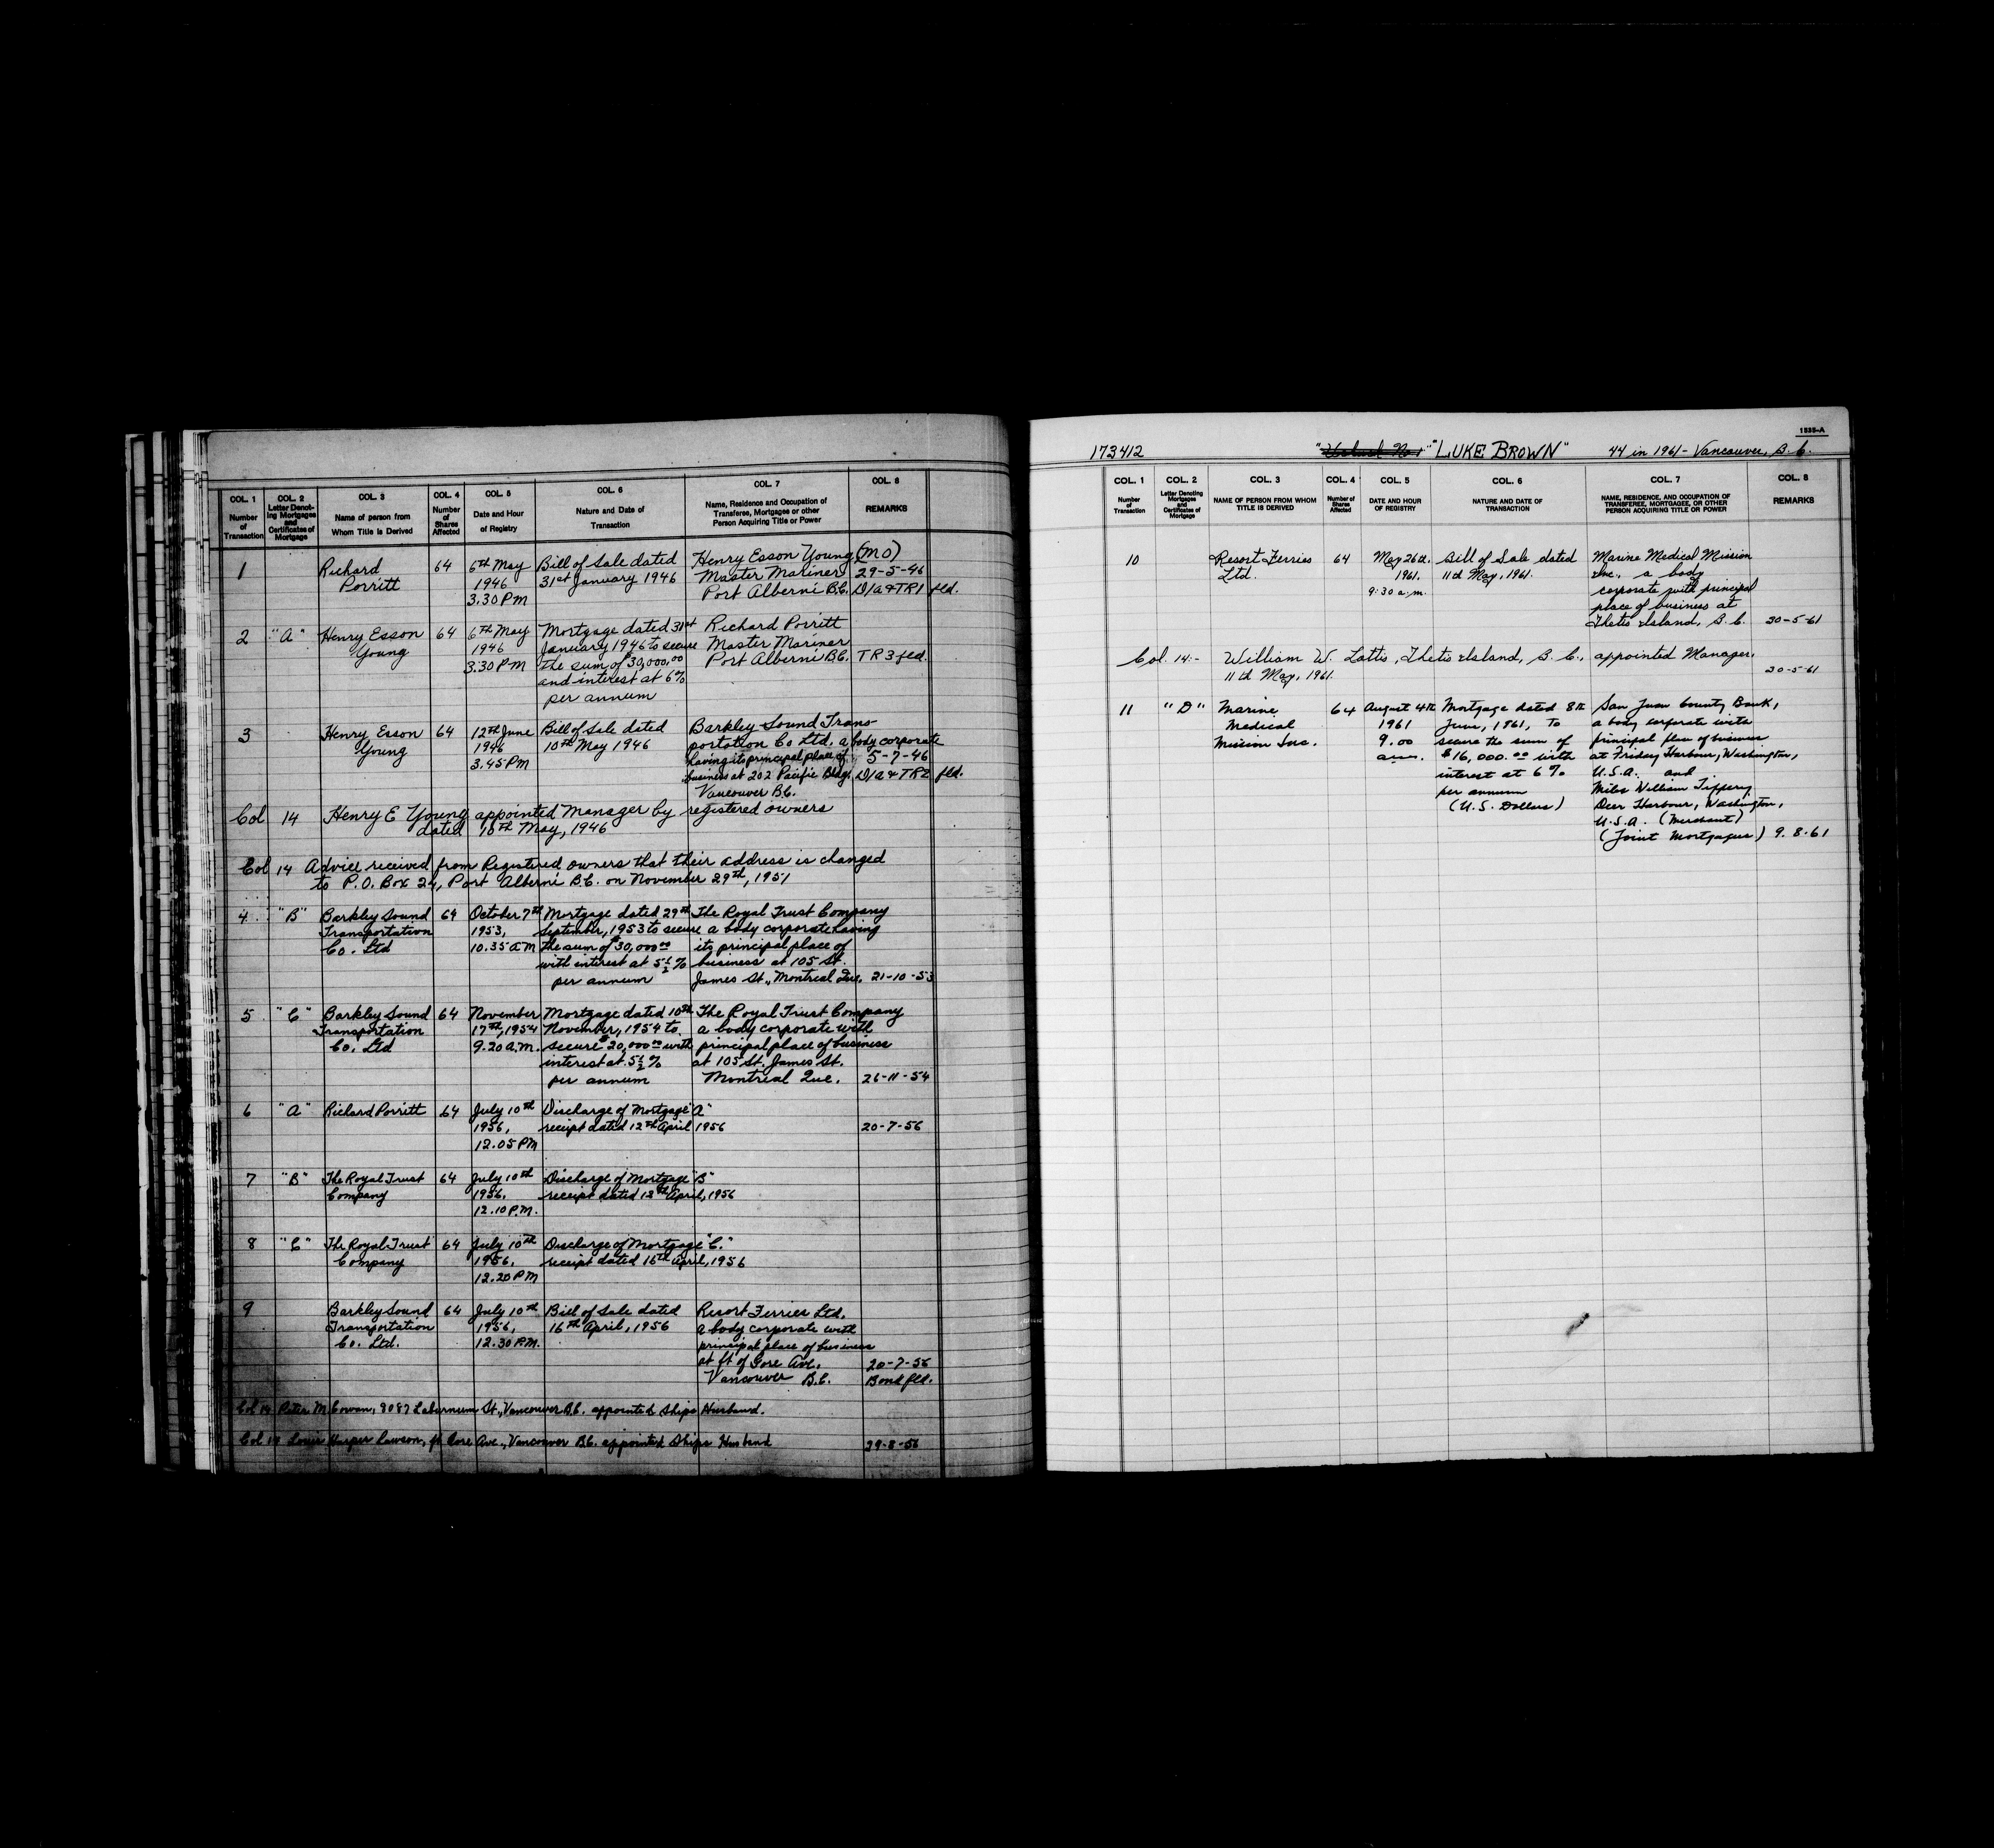 COL. 1 COL. 2 COL. 3 COL. 4 COL. 5 COL. 6 COL. 7 COL. 8
Number of Transaction
Letter Denoting Mortgages and Certificates of Mortgage
Name of person from Whom Title is Derived
Number of Shares Affected
Date and Hour of Registry
Nature and Date of Transaction
Name, Residence and Occupation of Transferee, Mortgages or other Person Acquiring Title or Power
REMARKS
1 Richard 64 6th May Bill of Sale dated Henry Esson Young (MO)
Porritt 1946 31st January 1946 Master Mariner 29-5-46
3.30 PM Port Alberni B.C. D/a & TR1 fld.
2 "A" Henry Esson 64 6th May Mortgage dated 31st Richard Porritt
Young 1946 January 1946 to secure Master Mariner
3.30 PM the sum of 30,000.00 Port Alberni B.C. TR3 fld.
and interest at 6%
per annum
3 Henry Esson 64 12th June Bill of Sale dated Barkley Sound Trans-
Young 1946 10th May 1946 portation Co Ltd. a body corporate
3.45 PM having its principal place of 5-7-46
business at 202 Pacific Bldg. D/a & TR2 fld.
Vancouver B.C.
Col 14 Henry E Young appointed Manager by registered owners
dated 10th May, 1946
Col 14 Advice received from Registered owners that their address is changed
to P.O. Box 24, Port Alberni B.C. on November 29th, 1951
4 "B" Barkley Sound 64 October 7th Mortgage dated 29th The Royal Trust Company
Transportation 1953, September, 1953 to secure a body corporate having
Co. Ltd 10.35 AM the sum of $30,000.00 its principal place of
with interest at 5½% business at 105 St.
per annum James St., Montreal Que. 21-10-53
5 "C" Barkley Sound 64 November Mortgage dated 10th The Royal Trust Company
Transportation 17th, 1954 November, 1954 to a body corporate with
Co. Ltd 9.20 A.M. secure $20,000.00 with principal place of business
interest at 5½% at 105 St. James St.
per annum Montreal Que. 26-11-54
6 "A" Richard Porritt 64 July 10th Discharge of Mortgage "A"
1956, receipt dated 12th April 1956 20-7-56
12.05 PM
7 "B" The Royal Trust 64 July 10th Discharge of Mortgage "B"
Company 1956, receipt dated April, 1956
12.10 P.M.
8 "C" The Royal Trust 64 July 10th Discharge of Mortgage "C."
Company 1956, receipt dated 16th April, 1956
12.20 PM
9 Barkley Sound 64 July 10th Bill of Sale dated Resort Ferries Ltd.
Transportation 1956, 16th April, 1956 a body corporate with
Co. Ltd. 12.30 P.M. principal place of business
at ft of Gore Ave. 20-7-56
Vancouver B.C. Bond fld.
Col 14 Peter M. Cowan, 8087 Laburnum St., Vancouver B.C. appointed Ships Husband.
Col 14 Louis Harper Lawson, ft Gore Ave., Vancouver B.C. appointed Ships Husband 29-8-56
1535-A
173412 "LUKE BROWN" 44 in 1961 - Vancouver, B.C.
COL. 1 COL. 2 COL. 3 COL. 4 COL. 5 COL. 6 COL. 7 COL. 8
Number of Transaction
Letter Denoting Mortgages and Certificates of Mortgage
NAME OF PERSON FROM WHOM TITLE IS DERIVED
Number of Shares Affected
DATE AND HOUR OF REGISTRY
NATURE AND DATE OF TRANSACTION
NAME, RESIDENCE, AND OCCUPATION OF TRANSFEREE, MORTGAGEE, OR OTHER PERSON ACQUIRING TITLE OR POWER
REMARKS
10 Resort Ferries 64 May 26th, Bill of Sale dated Marine Medical Mission
Ltd. 1961. 11th May, 1961. Inc., a body
9:30 a.m. corporate with principal
place of business at
Thetis Island, B.C. 30-5-61
Col. 14:- William W. Lattis, Thetis Island, B.C., appointed Manager.
11th May, 1961. 30-5-61
11 "D" Marine 64 August 4th Mortgage dated 8th San Juan County Bank,
Medical 1961 June, 1961, To a body corporate with
Mission Inc. 9.00 secure the sum of principal place of business
a.m. $16,000.00 with at Friday Harbour, Washington,
interest at 6% U.S.A. and
per annum Miles William
(U.S. Dollars) Deer Harbour, Washington,
U.S.A. (Merchant)
(Joint Mortgagees) 9.8.61